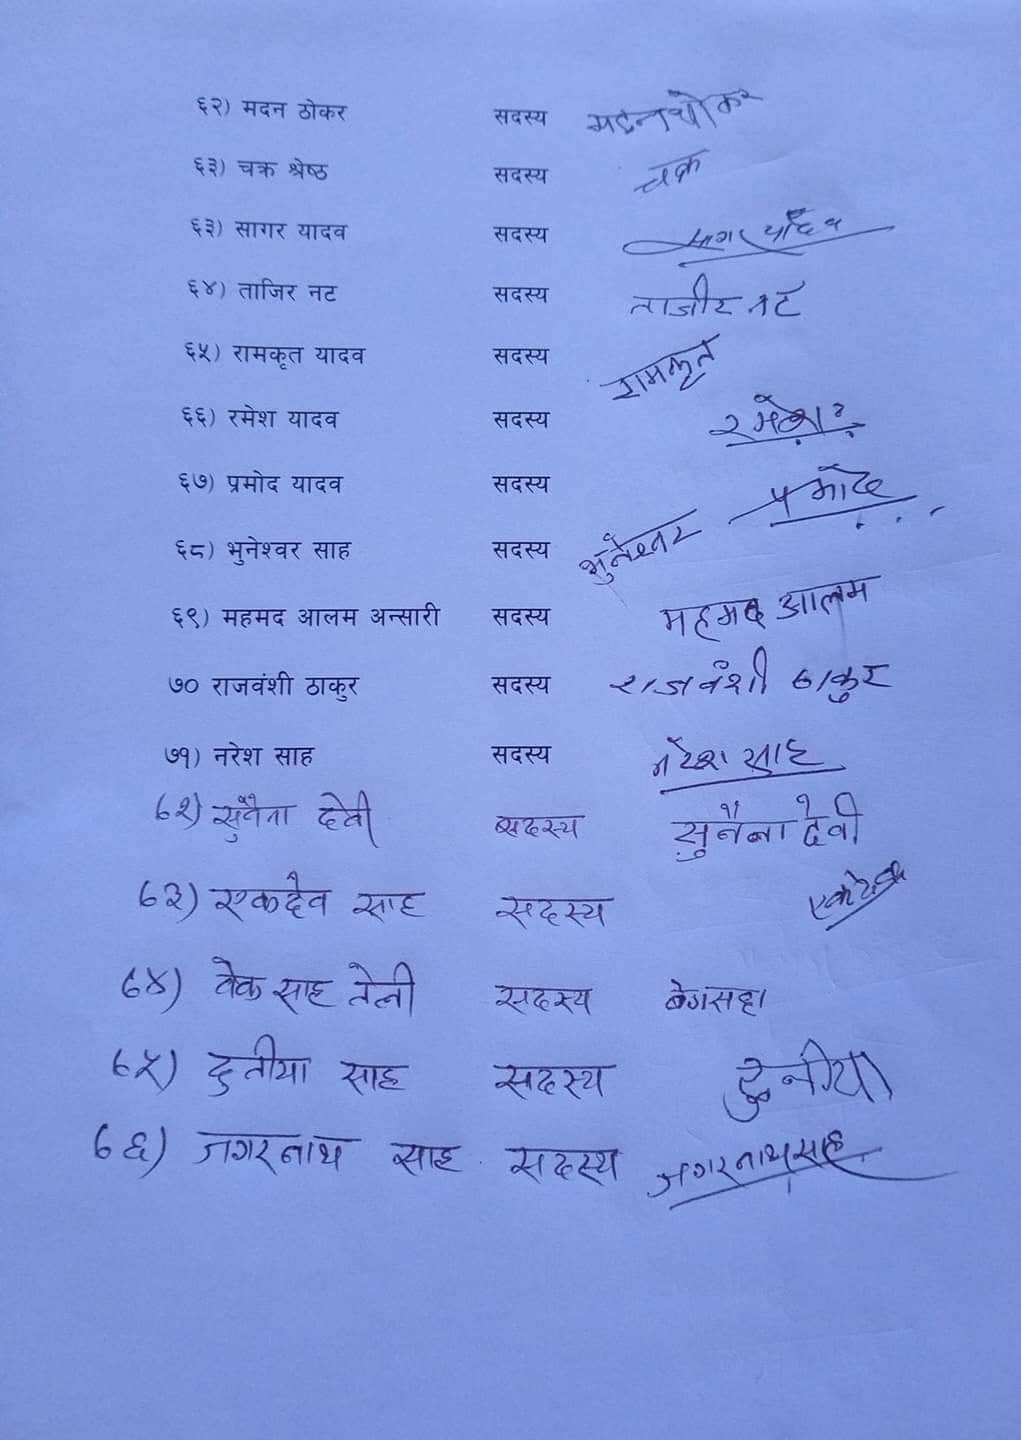 ६२) मदन ठोकर सदस्य मदन थोकर
६३) चक्र श्रेष्ठ सदस्य चक्र
६३) सागर यादव सदस्य सागर यादव
६४) ताजिर नट सदस्य ताजीर नट
६५) रामकृत यादव सदस्य रामकृत
६६) रमेश यादव सदस्य रमेश
६७) प्रमोद यादव सदस्य प्रमोद
६८) भुनेश्वर साह सदस्य भुनेश्वर
६९) महमद आलम अन्सारी सदस्य महमद आलम
७० राजवंशी ठाकुर सदस्य राजवंशी ठाकुर
७१) नरेश साह सदस्य नरेश साह
७२) सुनैना देवी सदस्य सुनैना देवी
७३) एकदेव साह सदस्य एकदेव
७४) वेक साह तेली सदस्य बेगसहा
७५) दुनीया साह सदस्य दुनीया
७६) जगरनाथ साह सदस्य जगरनाथ साह